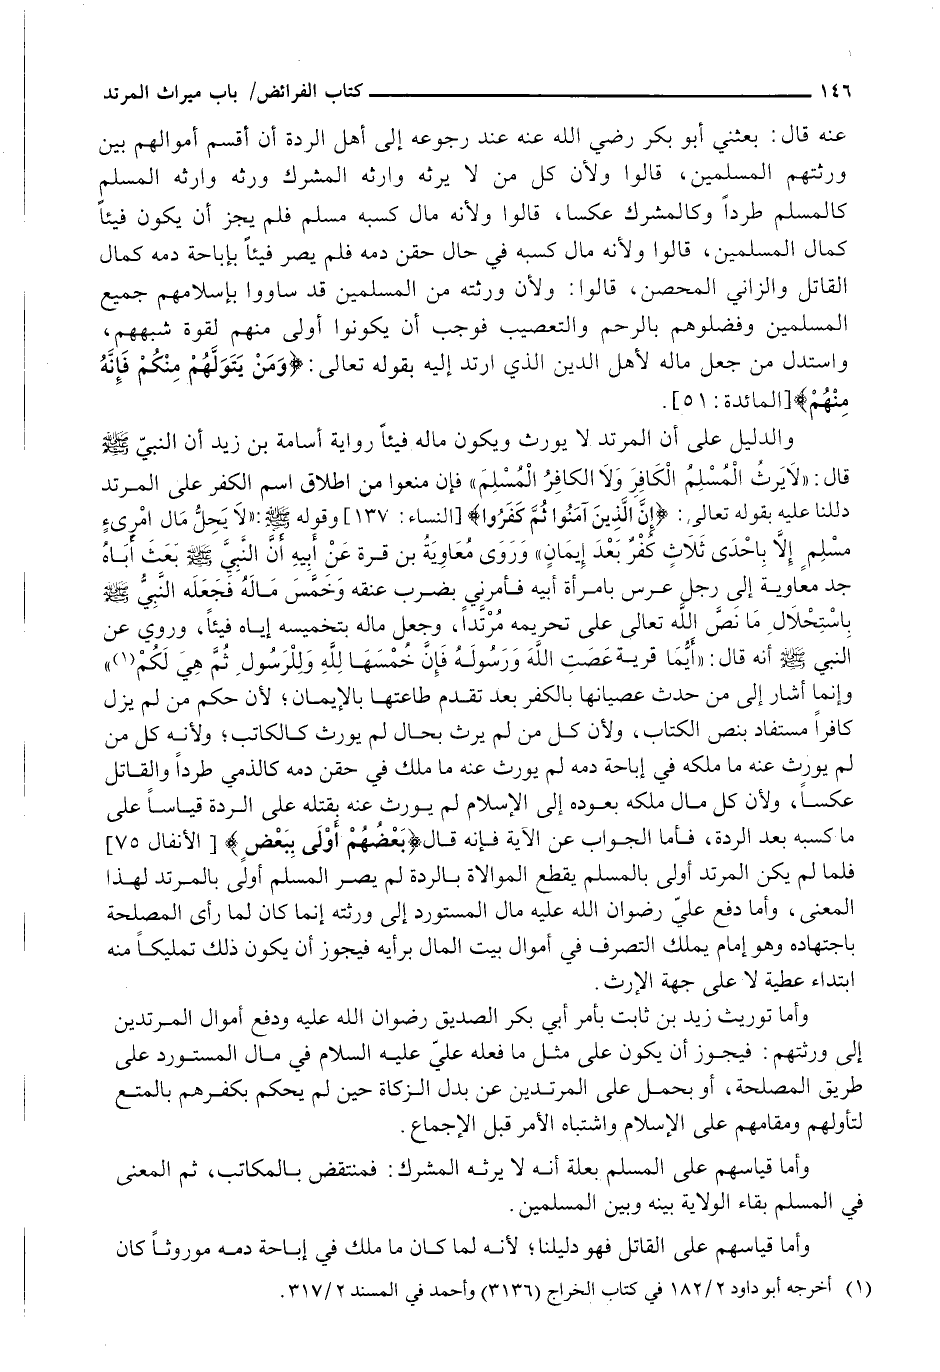 ١٤٦ ــــــــــــــــــــ كتاب الفرائض/ باب ميراث المرتد
عنه قال: بعثني أبو بكر رضي الله عنه عند رجوعه إلى أهل الردة أن أقسم أموالهم بين
ورثتهم المسلمين، قالوا ولأن كل من لا يرثه وارثه المشرك ورثه وارثه المسلم
كالمسلم طرداً وكالمشرك عكسا، قالوا ولأنه مال كسبه مسلم فلم يجز أن يكون فيئاً
كمال المسلمين، قالوا ولأنه مال كسبه في حال حقن دمه فلم يصر فيئاً بإباحة دمه كمال
القاتل والزاني المحصن، قالوا: ولأن ورثته من المسلمين قد ساووا بإسلامهم جميع
المسلمين وفضلوهم بالرحم والتعصيب فوجب أن يكونوا أولى منهم لقوة شبههم،
واستدل من جعل ماله لأهل الدين الذي ارتد إليه بقوله تعالى: ﴿وَمَنْ يَتَوَلَّهُمْ مِنْكُمْ فَإِنَّهُ
مِنْهُمْ﴾[المائدة: ٥١].
والدليل على أن المرتد لا يورث ويكون ماله فيئاً رواية أسامة بن زيد أن النبيّ ﷺ
قال: «لَايَرِثُ الْمُسْلِمُ الْكَافِرَ وَلَا الكافِرُ الْمُسْلِمَ» فإن منعوا من اطلاق اسم الكفر على المرتد
دللنا عليه بقوله تعالى: ﴿إِنَّ الَّذِينَ آمَنُوا ثُمَّ كَفَرُوا﴾ [النساء: ١٣٧] وقوله ﷺ: «لَا يَحِلُّ مَال امْرِىءٍ
مسْلِمٍ إِلَّا بِاحْدَى ثَلَاثٍ كُفْرٌ بَعْدَ إِيمَانٍ» وَرَوَى مُعَاوِيَةُ بن قرة عَنْ أَبِيهِ أَنَّ النَّبِيَّ ﷺ بَعَثَ أَبَاهُ
جد معاوية إلى رجل عرس بامرأة أبيه فأمرني بضرب عنقه وَخَمَّسَ مَالَهُ فَجَعَلَه النَّبِيُّ ﷺ
بِاسْتِحْلَالِ مَا نَصَّ اللَّه تعالى على تحريمه مُرْتَداً، وجعل ماله بتخميسه إياه فيئاً، وروي عن
النبي ﷺ أنه قال: «أَيُّمَا قرية عَصَتِ اللَّهَ وَرَسُولَهُ فَإِنَّ خُمْسَهَا لِلَّهِ وَلِلْرَسُولِ ثُمَّ هِيَ لَكُمْ(١)»
وإنما أشار إلى من حدث عصيانها بالكفر بعد تقدم طاعتها بالإيمان؛ لأن حكم من لم يزل
كافراً مستفاد بنص الكتاب، ولأن كل من لم يرث بحال لم يورث كالكاتب؛ ولأنه كل من
لم يورث عنه ما ملكه في إباحة دمه لم يورث عنه ما ملك في حقن دمه كالذمي طرداً والقاتل
عكساً، ولأن كل مال ملكه بعوده إلى الإسلام لم يورث عنه بقتله على الردة قياساً على
ما كسبه بعد الردة، فأما الجواب عن الآية فإنه قال﴿بَعْضُهُمْ أَوْلَى بِبَعْضٍ﴾ [ الأنفال ٧٥]
فلما لم يكن المرتد أولى بالمسلم يقطع الموالاة بالردة لم يصر المسلم أولى بالمرتد لهذا
المعنى، وأما دفع عليّ رضوان الله عليه مال المستورد إلى ورثته إنما كان لما رأى المصلحة
باجتهاده وهو إمام يملك التصرف في أموال بيت المال برأيه فيجوز أن يكون ذلك تمليكاً منه
ابتداء عطية لا على جهة الإرث.
وأما توريث زيد بن ثابت بأمر أبي بكر الصديق رضوان الله عليه ودفع أموال المرتدين
إلى ورثتهم: فيجوز أن يكون على مثل ما فعله عليّ عليه السلام في مال المستورد على
طريق المصلحة، أو يحمل على المرتدين عن بدل الزكاة حين لم يحكم بكفرهم بالمتع
لتأولهم ومقامهم على الإسلام واشتباه الأمر قبل الإجماع.
وأما قياسهم على المسلم بعلة أنه لا يرثه المشرك: فمنتقض بالمكاتب، ثم المعنى
في المسلم بقاء الولاية بينه وبين المسلمين.
وأما قياسهم على القاتل فهو دليلنا؛ لأنه لما كان ما ملك في إباحة دمه موروثاً كان
(١) أخرجه أبو داود ١٨٢/٢ في كتاب الخراج (٣١٣٦) وأحمد في المسند ٣١٧/٢.